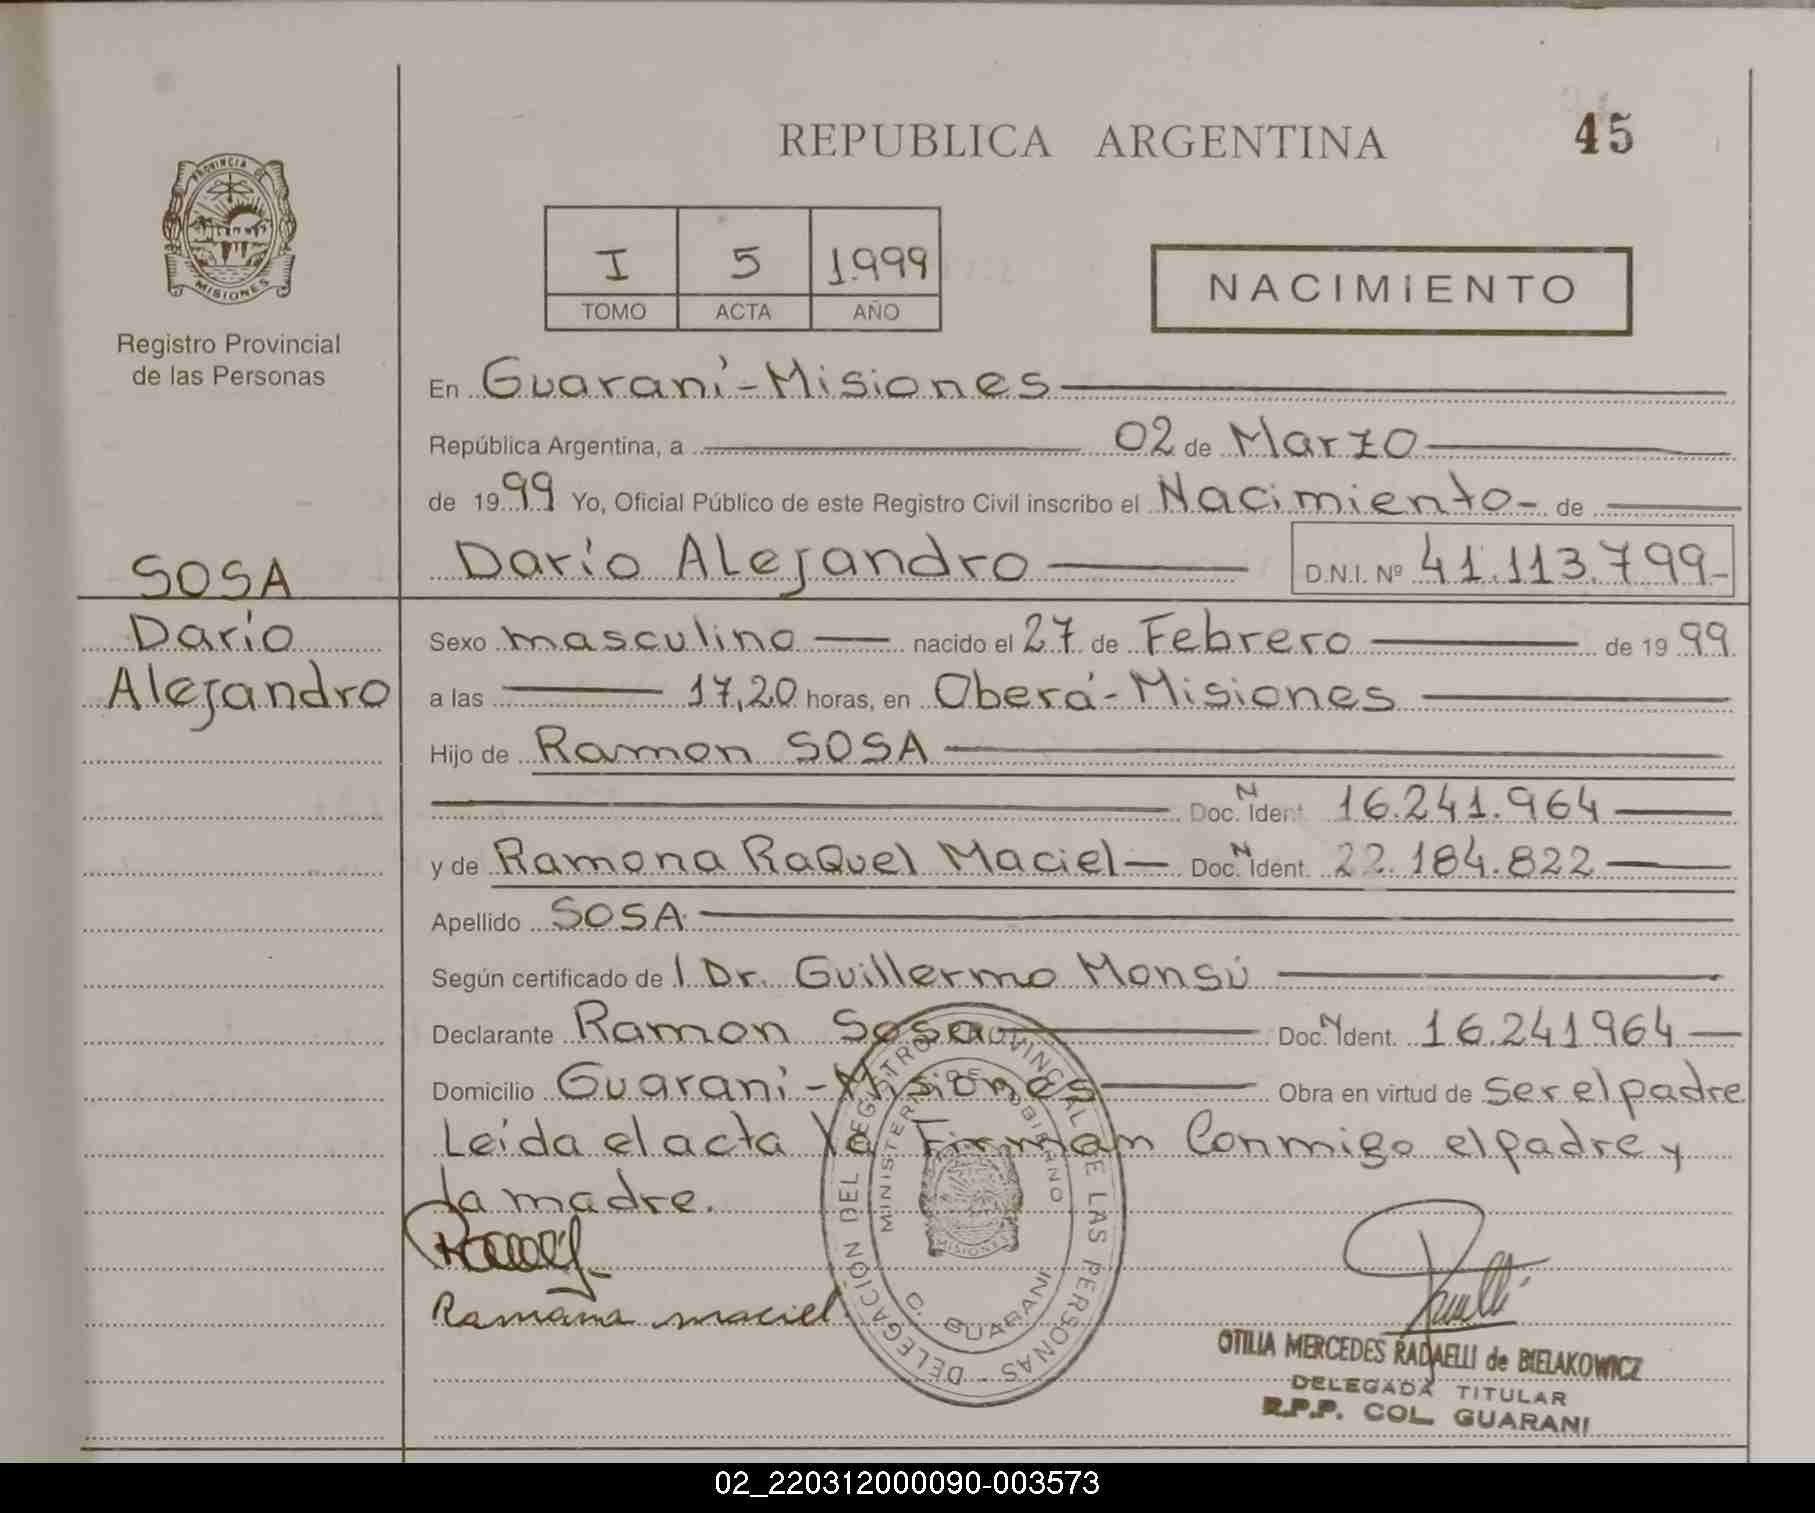 REPUBLICA ARGENTINA
45
PROVINCIA DE
MISIONES
Registro Provincial
de las Personas
I 5 1999
TOMO ACTA AÑO
NACIMIENTO
En Guaraní-Misiones
República Argentina, a 02 de Marzo
de 1999 Yo, Oficial Público de este Registro Civil inscribo el Nacimiento- de
SOSA
Darío Alejandro D.N.I. Nº 41.113.799-
Darío
Sexo masculino nacido el 27 de Febrero de 1999
Alejandro
a las 17,20 horas, en Oberá-Misiones
Hijo de Ramon SOSA
Doc. N Ident. 16.241.964
y de Ramona Raquel Maciel Doc. N Ident. 22.184.822
Apellido SOSA
Según certificado de l Dr. Guillermo Monsú
Declarante Ramon Sosa Doc. N Ident. 16.241964
Domicilio Guaraní-Misiones Obra en virtud de ser el padre
Leída el acta la Firman Conmigo el padre y
la madre.
Ramona maciel
DELEGACIÓN DEL REGISTRO PROVINCIAL DE LAS PERSONAS -
MINISTERIO DE GOBIERNO
MISIONES
C. GUARANI
OTILIA MERCEDES RADAELLI de BIELAKOWICZ
DELEGADA TITULAR
R.P.P. COL. GUARANI
02_220312000090-003573